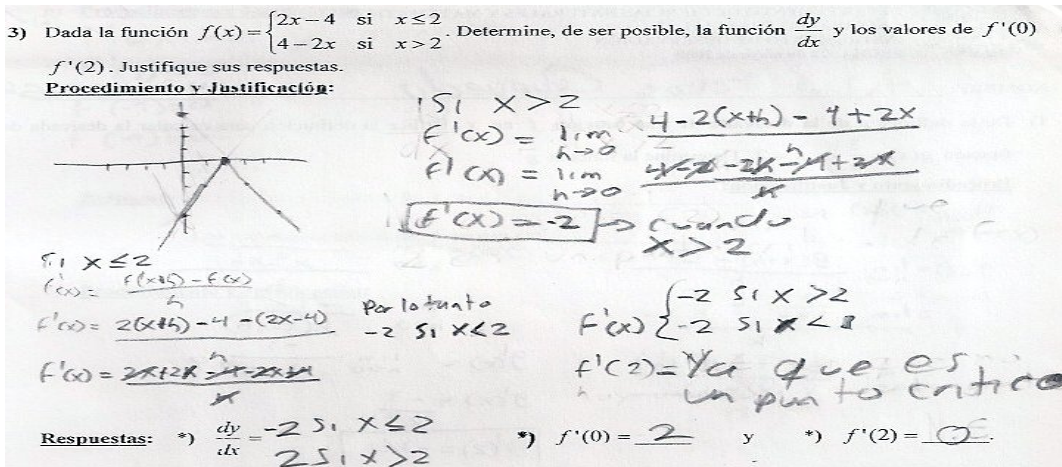 3) Dada la función f(x) = { 2x − 4 si x ≤ 2
4 − 2x si x > 2 . Determine, de ser posible, la función dy/dx y los valores de f '(0)
f '(2) . Justifique sus respuestas.
Procedimiento y Justificación:
Si x > 2
f'(x) = lim h→0 4-2(x+h) - 4+2x / h
f'(x) = lim h→0 4-2x-2h-4+2x / h
f'(x) = -2 → cuando
x > 2
Si x ≤ 2
f'(x) = f(x+h) - f(x) / h
f'(x) = 2(x+h)-4-(2x-4) / h
Por lo tanto
-2 Si x<2
f'(x) { -2 Si x >2
-2 Si x <
f'(2) = Ya que es
un punto critico
Respuestas: *) dy/dx = -2 Si x ≤ 2
2 Si x > 2
*) f '(0) = 2 y *) f '(2) = 0.